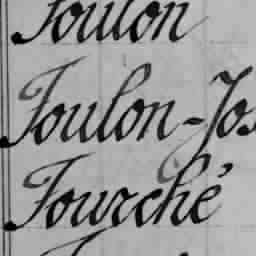 Foulon
Foulon-Jos
Fourché